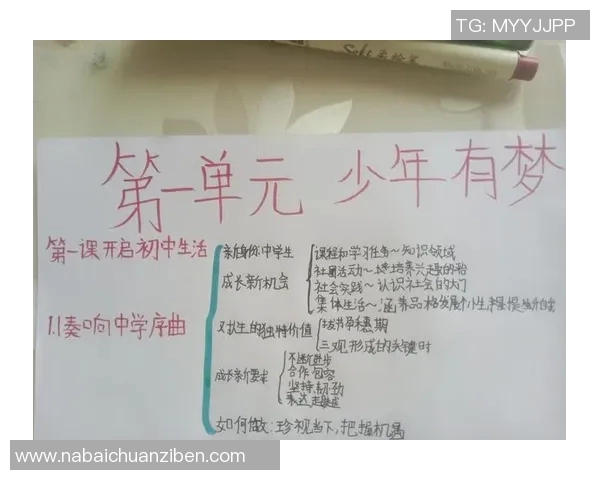 TG: MYYJJPP
第一单元 少年有梦
第一课开启初中生活
新身份:中学生
成长新机会
课程和学习任务~知识领域
社团活动~培养兴趣的
社会实践~认识社会的大门
集体生活~涵养品格发展个小生
1.1奏响中学序曲
对人生的独特价值
拔节孕穗期
三观形成的关键时
成长新要求
不断进步
合作包容
坚持韧劲
表达
如何做:珍视当下,把握机遇
www.nabaichuanziben.com